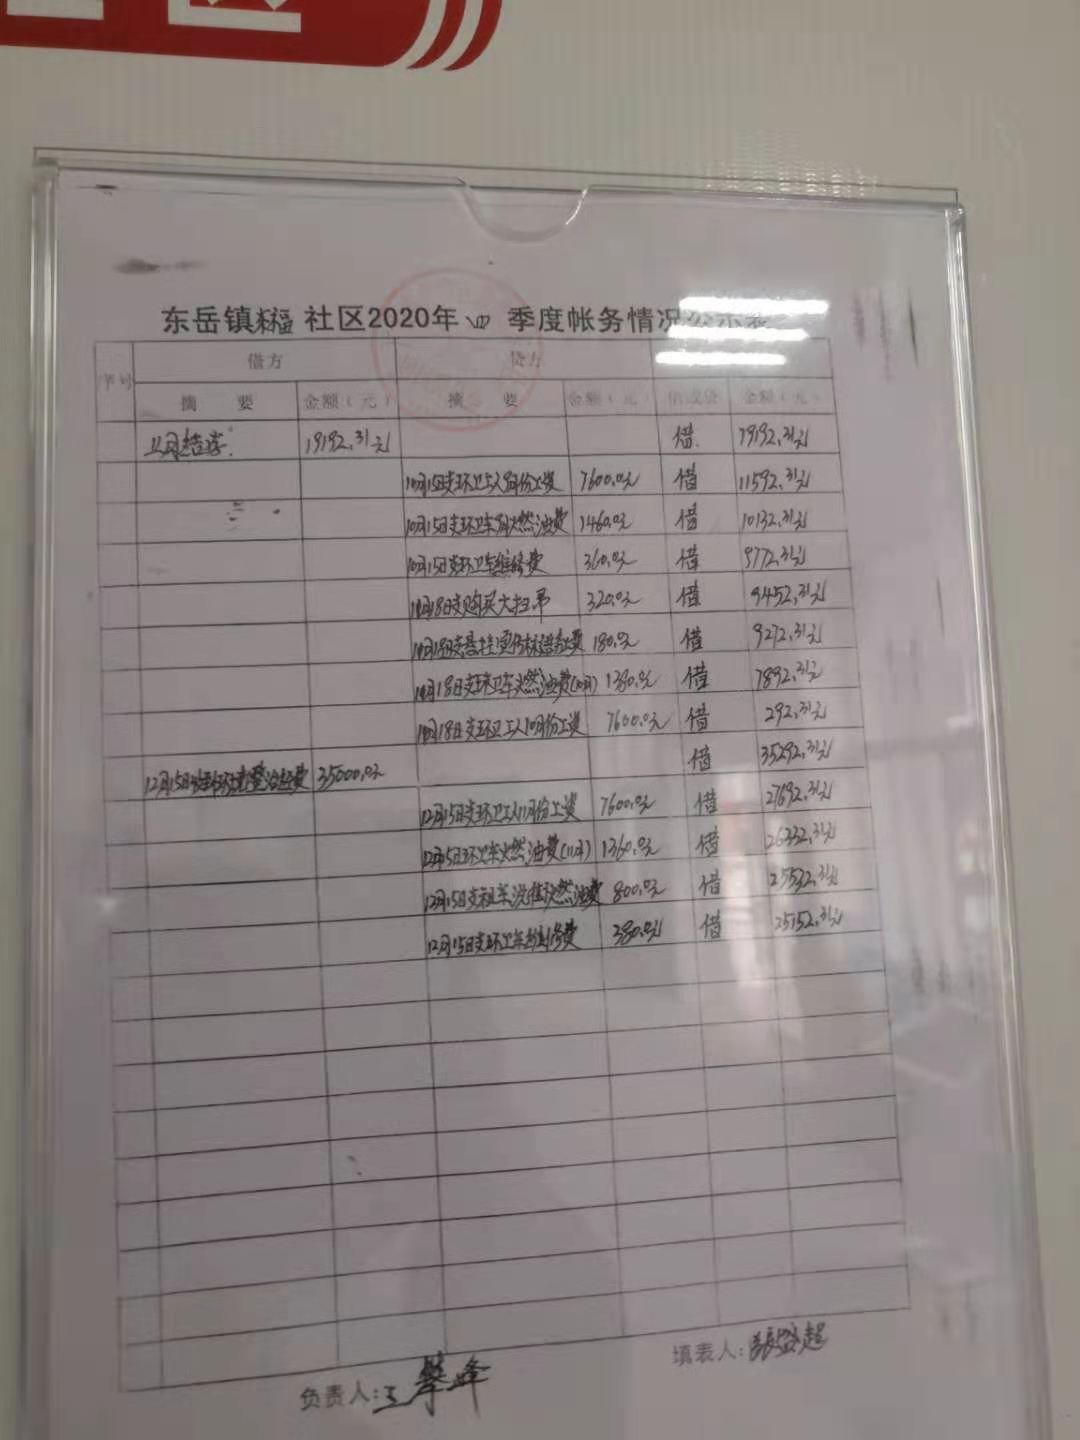 区
东岳镇来福社区2020年四季度帐务情况公示表
序号 借方 贷方
摘 要 金额(元) 摘 要 金额(元) 借或贷 金额(元)
上月结存 19192.31元 借 19192.31元
10月15日支环卫工人9月份工资 7600.0元 借 11592.31元
10月15日支环卫车 燃油费 1460.0元 借 10132.31元
10月15日支环卫车维修费 360.0元 借 9772.31元
18日支购买大扫帚 320.0元 借 9452.31元
180.0元 借 9272.31元
18日支环卫车燃油费(10月) 1380.0元 借 7892.31元
18日支环卫工人10月份工资 7600.0元 借 292.31元
12月15日 环境整治经费 35000.0元 借 35292.31元
12月15日支环卫工人11月份工资 7600.0元 借 27692.31元
12月15日环卫车燃油费(11月) 1360.0元 借 26332.31元
12月15日支租车 燃油费 800.0元 借 25532.31元
12月15日支环卫车维修费 380.0元 借 25152.31元
填表人:
负责人:王攀峰